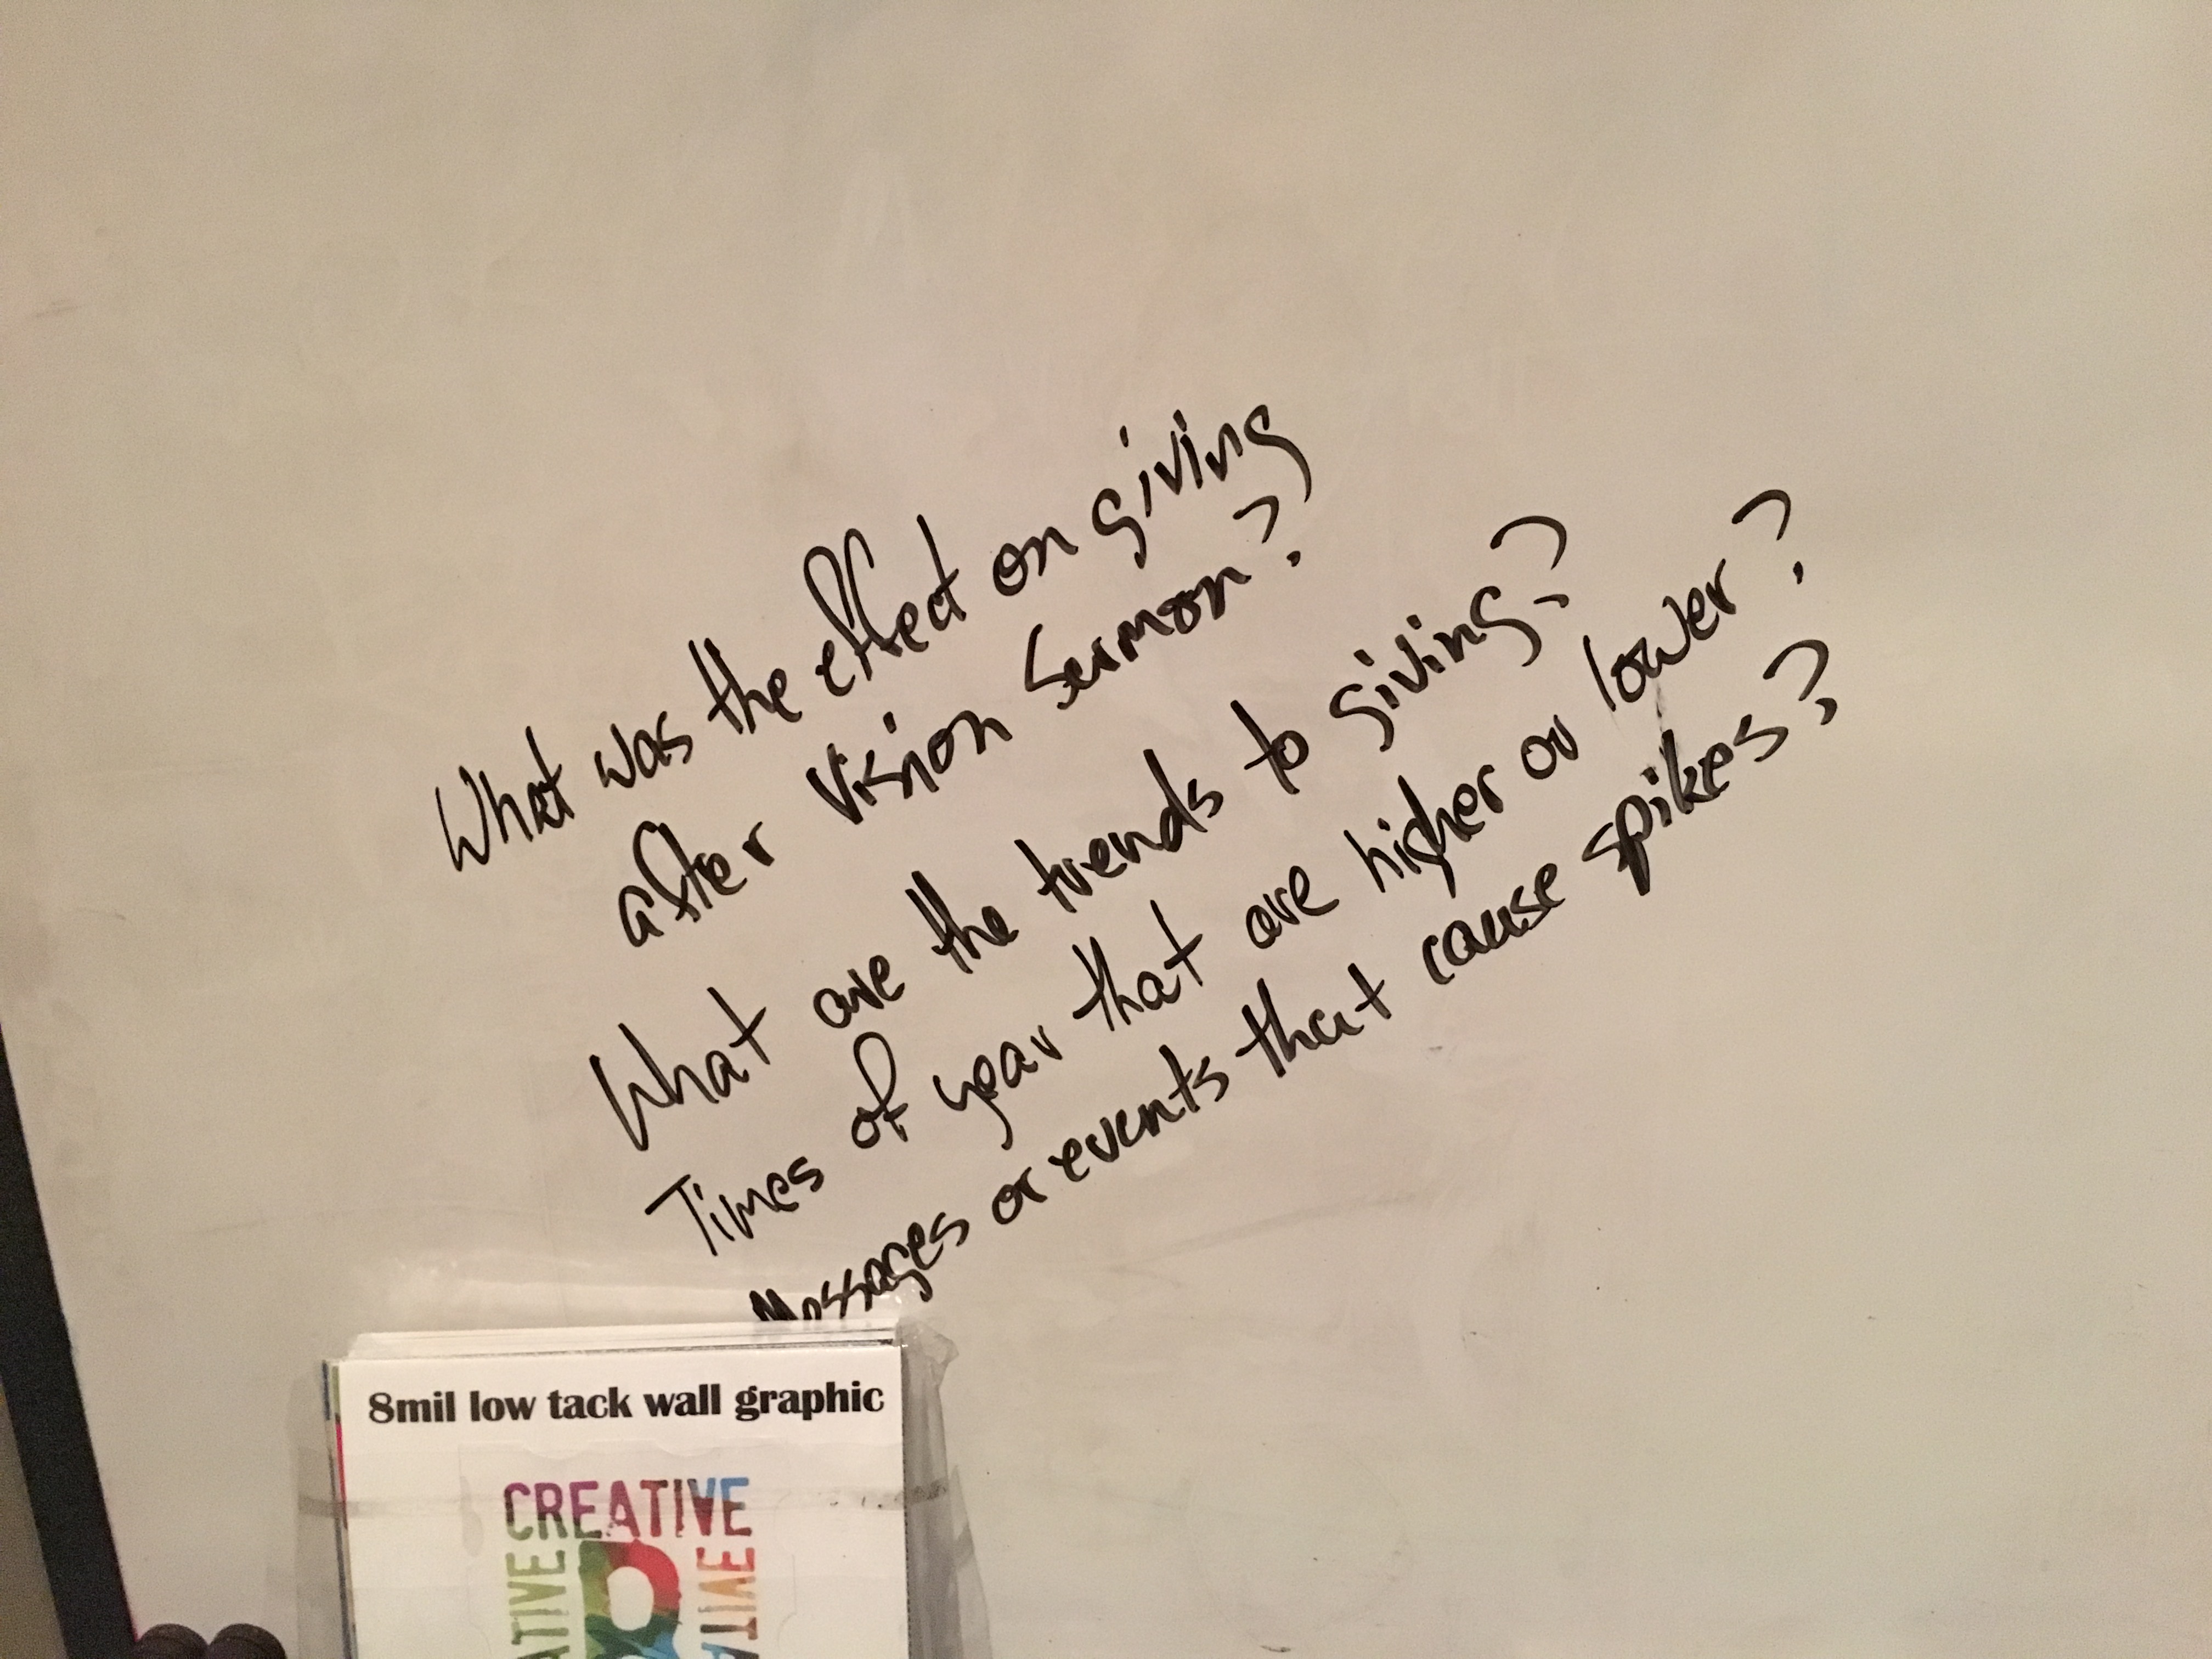 What was the effect on giving
after Vision Sermon?
What are the trends to giving?
Times of year that are higher or lower?
Messages or events that cause spikes?
8mil low tack wall graphic
CREATIVE